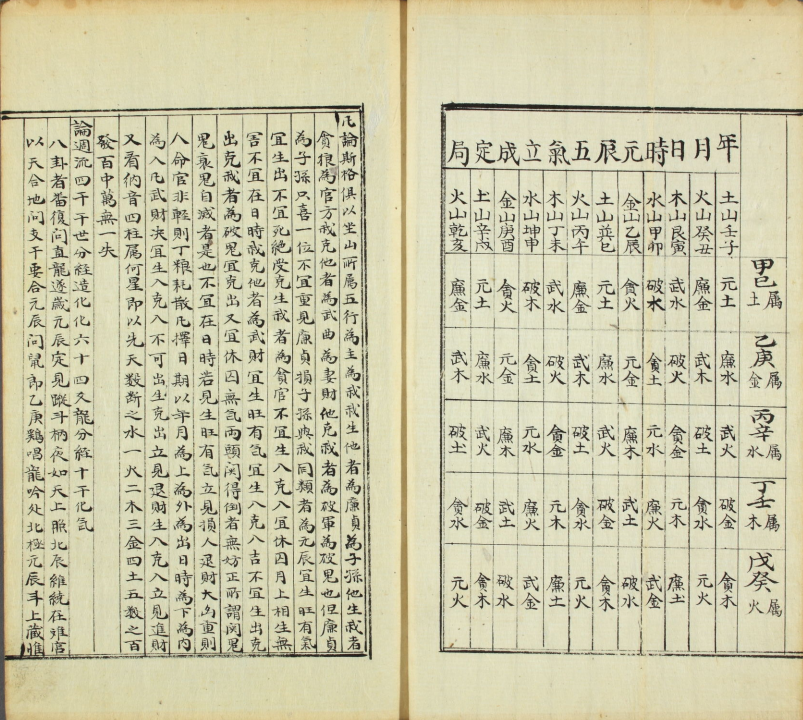 甲巳属土 乙庚属金 丙辛属水 丁壬属木 戊癸属火
年月日時元辰五氣立成定局
土山壬子 元土 廉水 武火 破金 貪木
火山癸丑 廉金 武木 破土 貪水 元火
木山艮寅 武水 破火 貪金 元木 廉土
水山甲卯 破木 貪土 元水 廉火 武金
金山乙辰 貪火 元金 廉木 武土 破水
土山巽巳 元土 廉水 武火 破金 貪木
火山丙午 廉金 武木 破土 貪水 元火
木山丁未 武水 破火 貪金 元木 廉土
水山坤申 破木 貪土 元水 廉火 武金
金山庚酉 貪火 元金 廉木 武土 破水
土山辛戌 元土 廉水 武火 破金 貪木
火山乾亥 廉金 武木 破土 貪水 元火
凡論斯格俱以坐山所屬五行為主為我我生他者為廉貞為子孫他生我者
貪狼為官方我克他者為武曲為妻財他克我者為破軍為破鬼也但廉貞
為子孫只喜一位不宜重見廉貞損子孫與我同類者為元辰宜生旺有氣
宜生出不宜死絶受克生我者為貪官不宜生入克入宜休囚月上相生無
害不宜在日時我克他者為武財宜生旺有氣宜生入克入吉不宜生出克
出克我者為破鬼宜克出又宜休囚無氣兩頭関得倒者無妨正所謂関鬼
鬼衰鬼自滅者是也不宜在日時若見生旺有氣立見損人退財大凶重則
人命官非輕則丁粮耗散凡擇日期以年月為上為外為出日時為下為内
為入凡武財决宜生入克入不可出生克出立見退財生入克入立見進財
又看納音四柱屬何星即以先天数断之水一火二木三金四土五数之百
發百中萬無一失
論週流四千干世分経造化化六十四爻龍分経十干化氣
八卦者畨復問直龍遂歲元辰定見蹤斗柄夜如天上照北辰維統在难官
以天合地問支干要合元辰問鼠郎乙庚鷄唱龍吟处北極元辰斗上藏雎